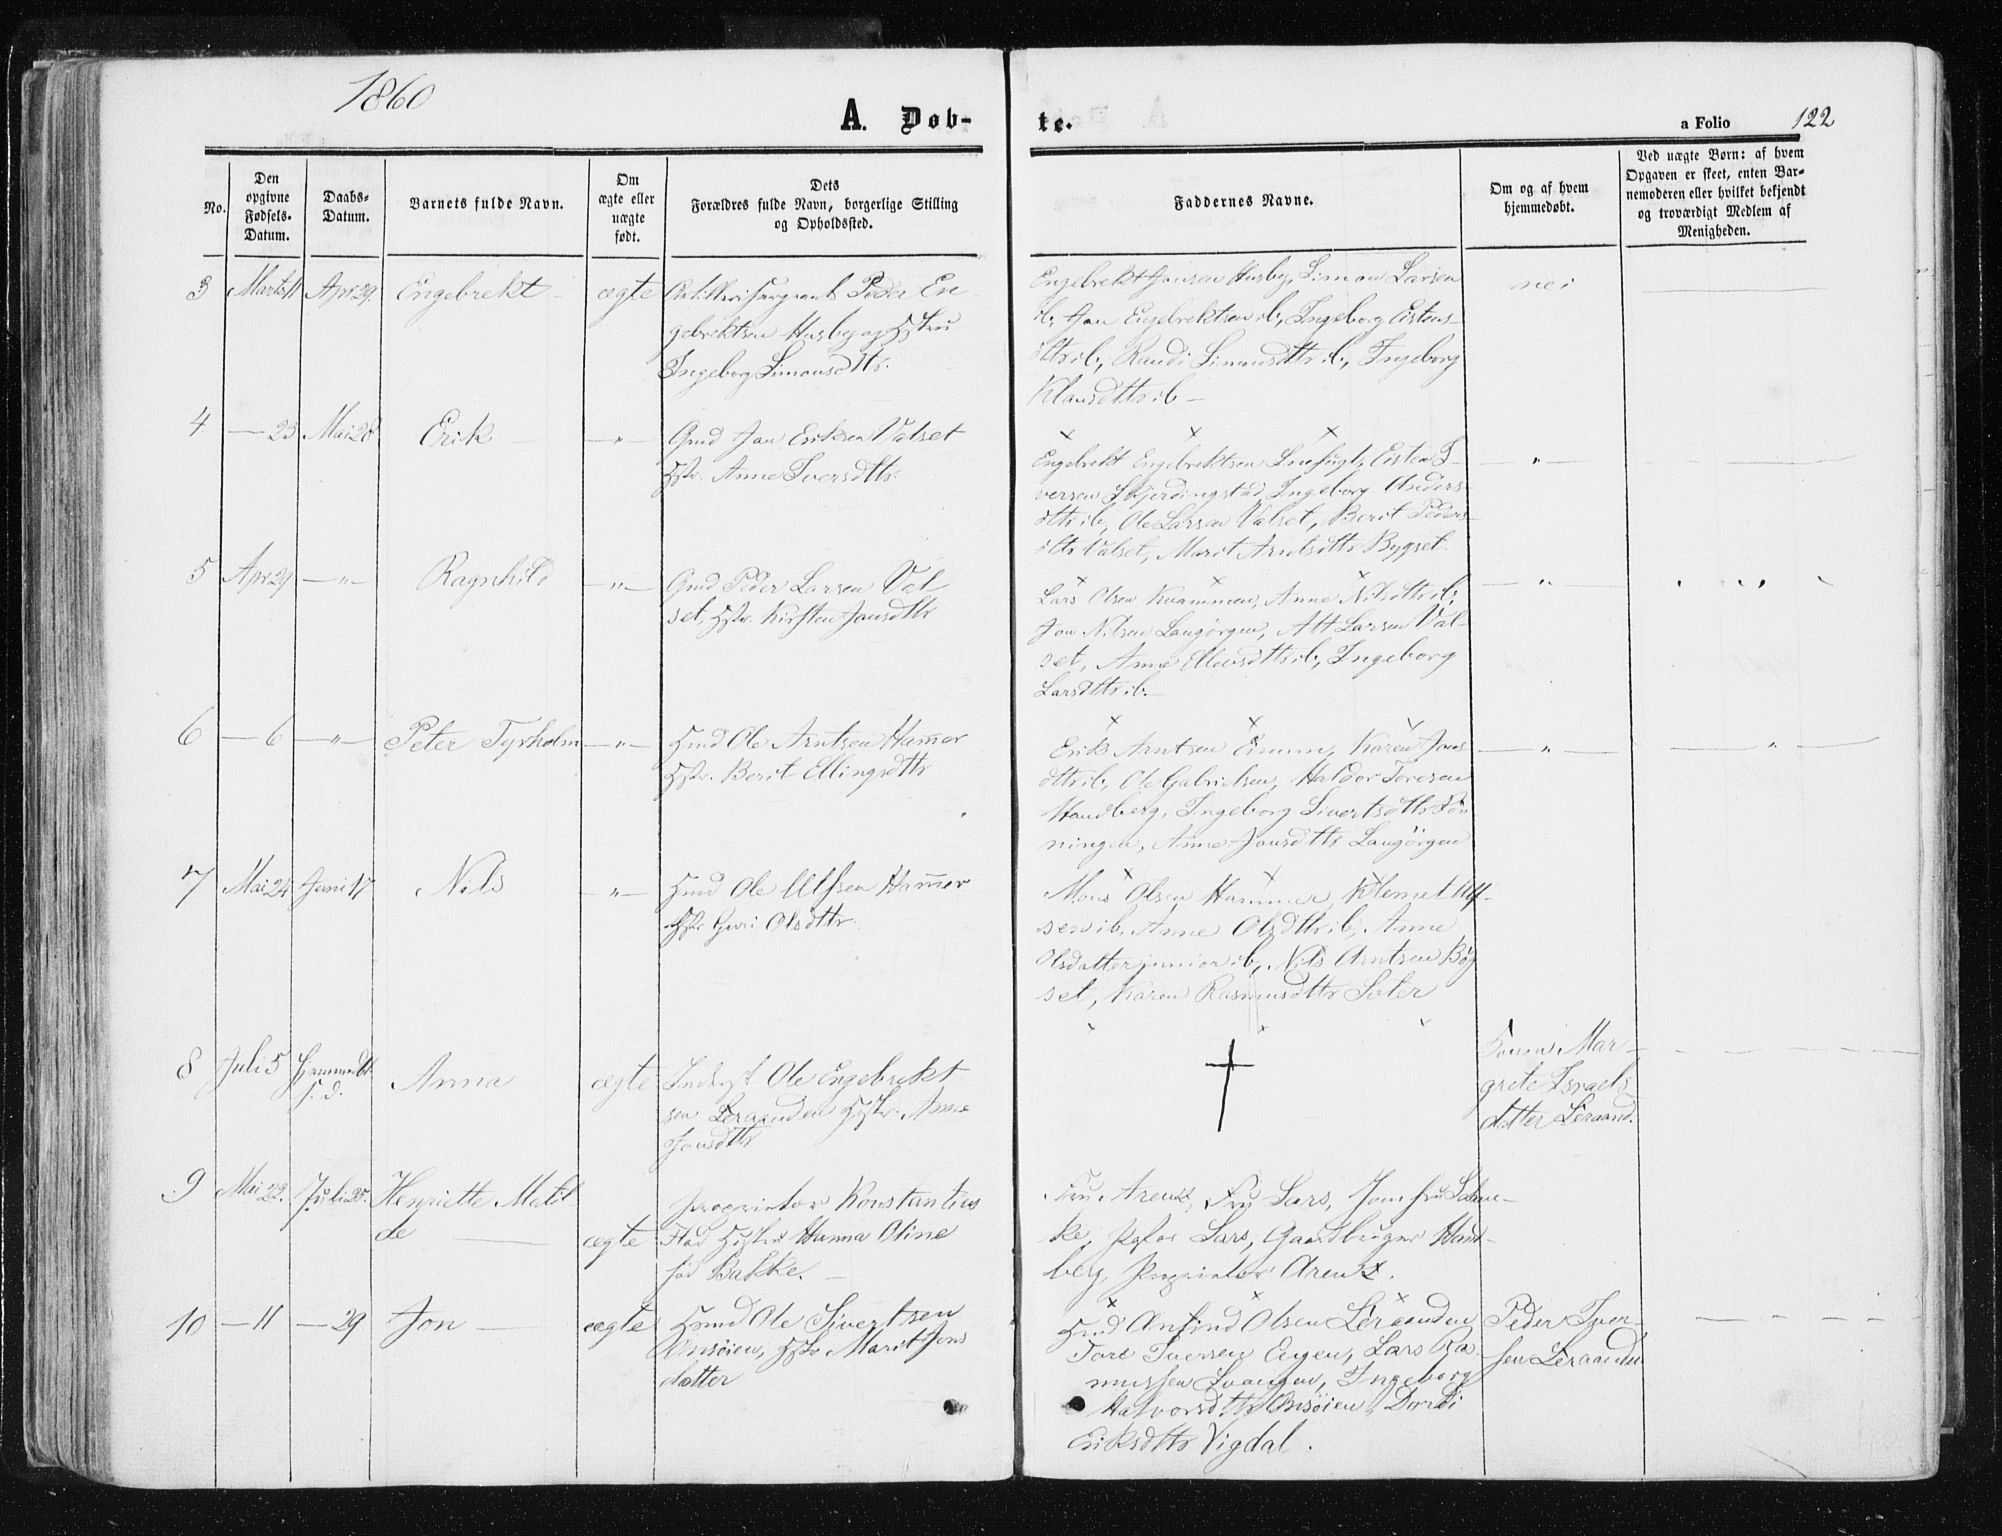 1860
A. Døb-
te.
a Folio
122
No.
Den opgivne Fødsels-Datum.
Daabs-Datum.
Barnets fulde Navn.
Om ægte eller uægte født.
Dets Forældres fulde Navn, borgerlige Stilling og Opholdssted.
Faddernes Navne.
Om og af hvem hjemmedøbt.
Ved uægte Børn: af hvem Opgaven er skeet, enten Barnemoderen eller hvilket bekjendt og troværdigt Medlem af Menigheden.
3 Marts 11 Apr 29. Engebrekt ægte Peder En-
gebrektsen Husby og Hstru
Ingeborg Simonsdttr.
Engebrekt Jonsen Husby, Simon Larsen
ib, Jon Engebrektsen ib, Ingeborg Eistens-
dttr ib, Randi Simonsdttr ib, Ingeborg
Klausdttr ib
nei
4 — 23 Mai 28 Erik — " — Gmd Jon Eriksen Valset
Hstr. Anne Iversdttr.
Engebrekt Engebrektsen Snefugl, Eisten I-
versen Gjerdingstad, Ingeborg Anders-
dttr ib, Ole Larsen Valset, Berit Peders-
dttr Valset, Marit Arntsdttr Bygset.
— " —
5 Apr 29 — " — Ragnhild — " — Gmd Peder Larsen Val-
set, Hstr. Kirsten Jonsdttr
Lars Olsen Kvammen, Anne Nilsdttr ib,
Jon Nilsen Langörgen, Att Larsen Val-
set, Anne Ellevsdttr ib, Ingeborg
Larsdttr ib.
— " —
6 — 6 — " — Peter Tyrholm — " — Hmd Ole Arntsen Hamer
Hstr. Berit Ellingsdttr
Erik Arntsen Eimun, Karen Jons-
dttr ib, Ole Gabrielsen, Haldor Toresen
Handberg, Ingeborg Sivertsdttr Fön-
ningen, Anne Jonsdttr Langörgen
— " — — " —
7 Mai 24 Juni 17 Nils — " — Hmd Ole Ulfsen Hamer
Hstr Guri Olsdttr.
Mons Olsen Hammer, Klemet Ulf-
sen ib, Anne Olsdttr ib, Anne
Olsdatter junior ib, Nils Arntsen Bög-
set, Karen Rasmusdttr Soler
8 Juli 5 Hjemmedbt s. d. Anna ægte Inderst Ole Engebrekt
sen Leraanden Hstr. Anne
Jonsdttr
Mar-
grete Israels-
datter Leraand.
9 Mai 22. Juli 25. Henriette Matil-
de ægte Proprietær Konstantius
Flod Hstr Hanna Oline
fød Bakke.
Fru Arentz, Fru Lars, Jomfru Schan-
ke, Lars, Gaardbruger Hand-
berg, Proprietær Arentz.
10 — 11 — 29 Jon — ægte Hmd Ole Sivertsen
Onsöien, Hstr Marit Jons
datter
Hmd Anfind Olsen Leraanden
Tore Iversen Engen, Lars Ra-
mussen Svangen, Ingeborg
Halvorsdttr Onsöien, Dordi
Eriksdttr Vigdal.
Peder Iver-
sen Leraanden